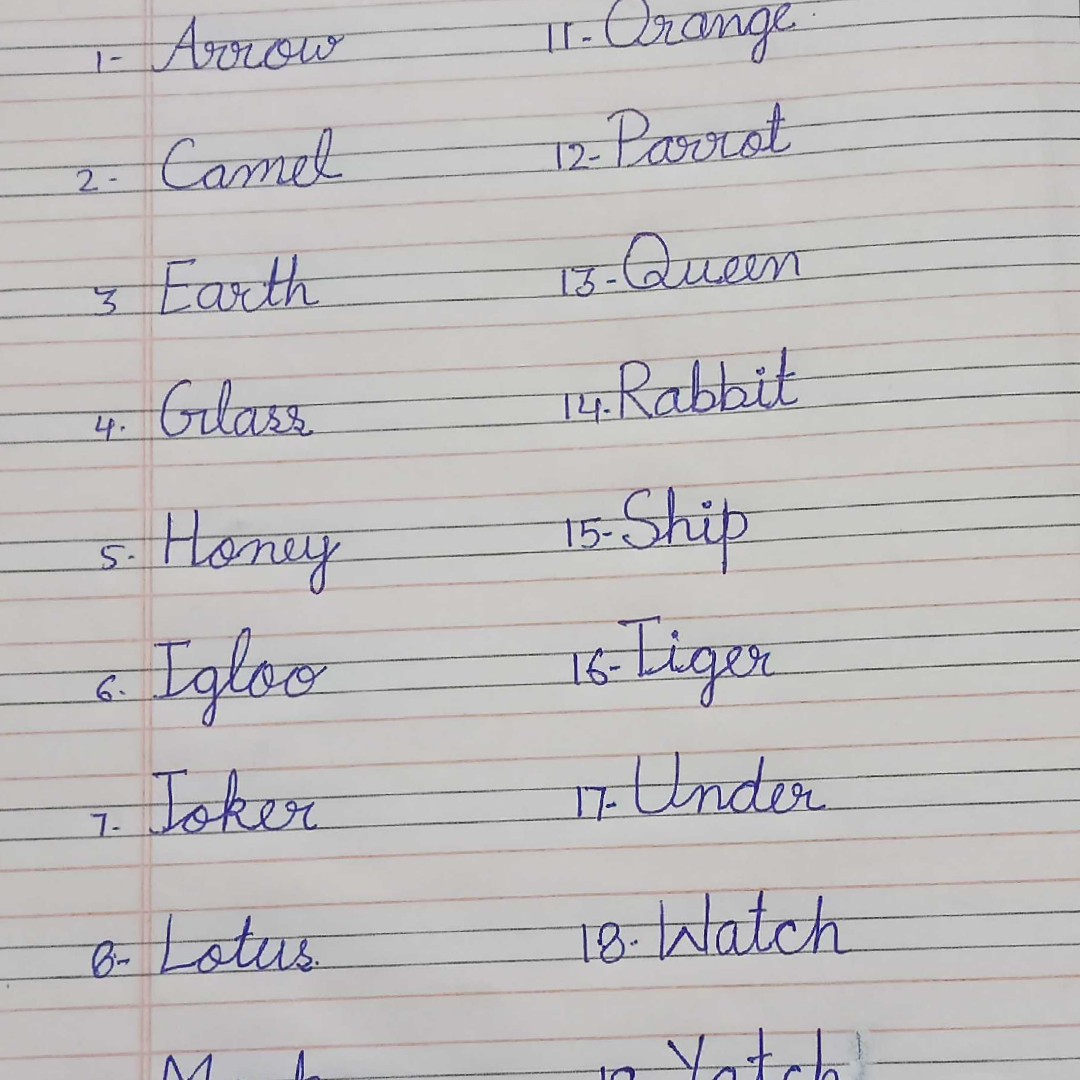 1- Arrow 11- Orange
2- Camel 12- Parrot
3 Earth 13- Queen
4. Glass 14. Rabbit
5. Honey 15- Ship
6. Igloo 16- Tiger
7. Joker 17- Under
8- Lotus. 18. Watch
Yatch